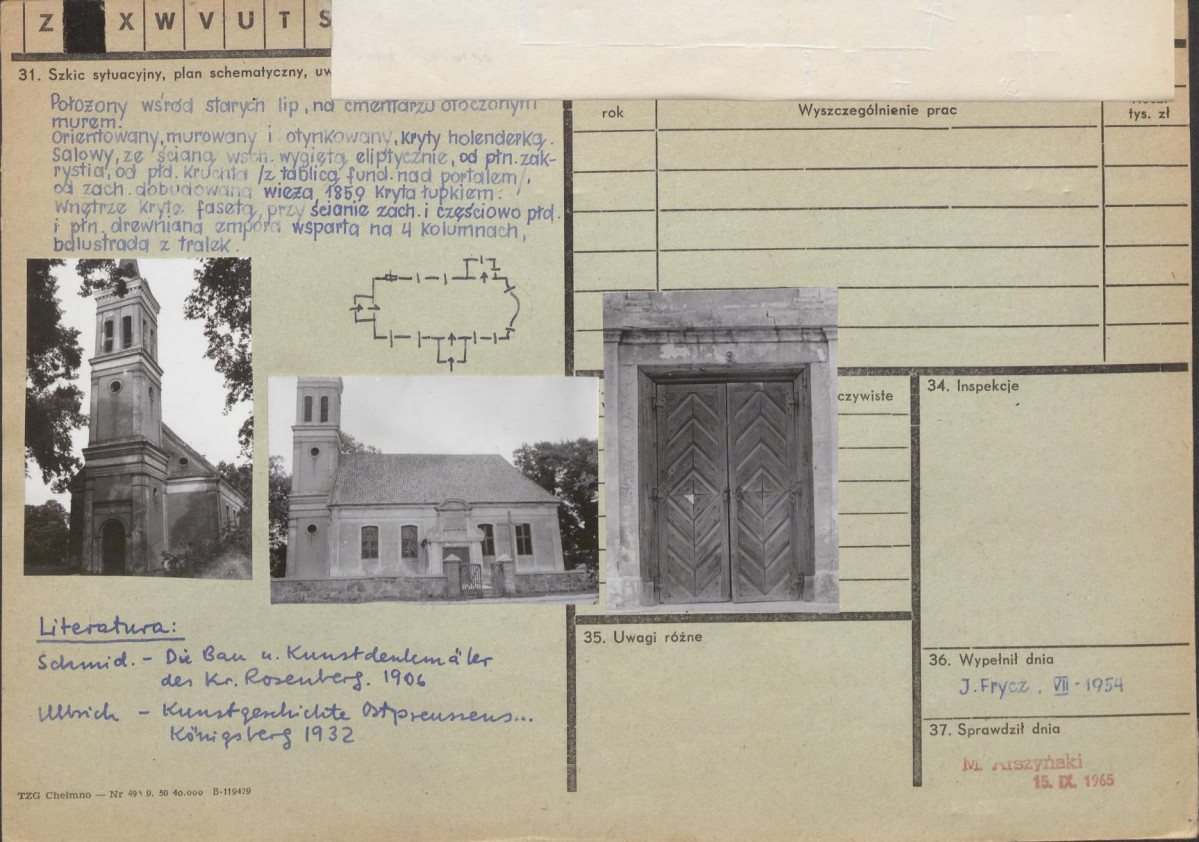 Z X W V U T S
31. Szkic sytuacyjny, plan schematyczny,
Położony wśród starych lip, na cmentarzu otoczonym
murem.
Orientowany, murowany i otynkowany, kryty holenderką.
Salowy, ze ścianą wsch. wygiętą eliptycznie, od płn. zak-
rystia, od płd. kruchta /z tablicą fund. nad portalem/,
od zach. dobudowana wieża, 1859 kryta łupkiem.
Wnętrze kryte fasetą, przy ścianie zach. i częściowo płd.
i płn. drewniana empora wsparta na 4 kolumnach,
balustrada z tralek.
Literatura:
Schmid. - Die Bau u. Kunstdenkmäler
des Kr. Rosenberg. 1906
Ulbrich - Kunstgeschichte Ostpreussens...
Königsberg 1932
TZG Chełmno — Nr 50 40.000 B-119429
rok
Wyszczególnienie prac
tys. zł
czywiste
34. Inspekcje
35. Uwagi różne
36. Wypełnił dnia
J. Frycz, VII - 1954
37. Sprawdził dnia
M. Arszyński
15. IX. 1965